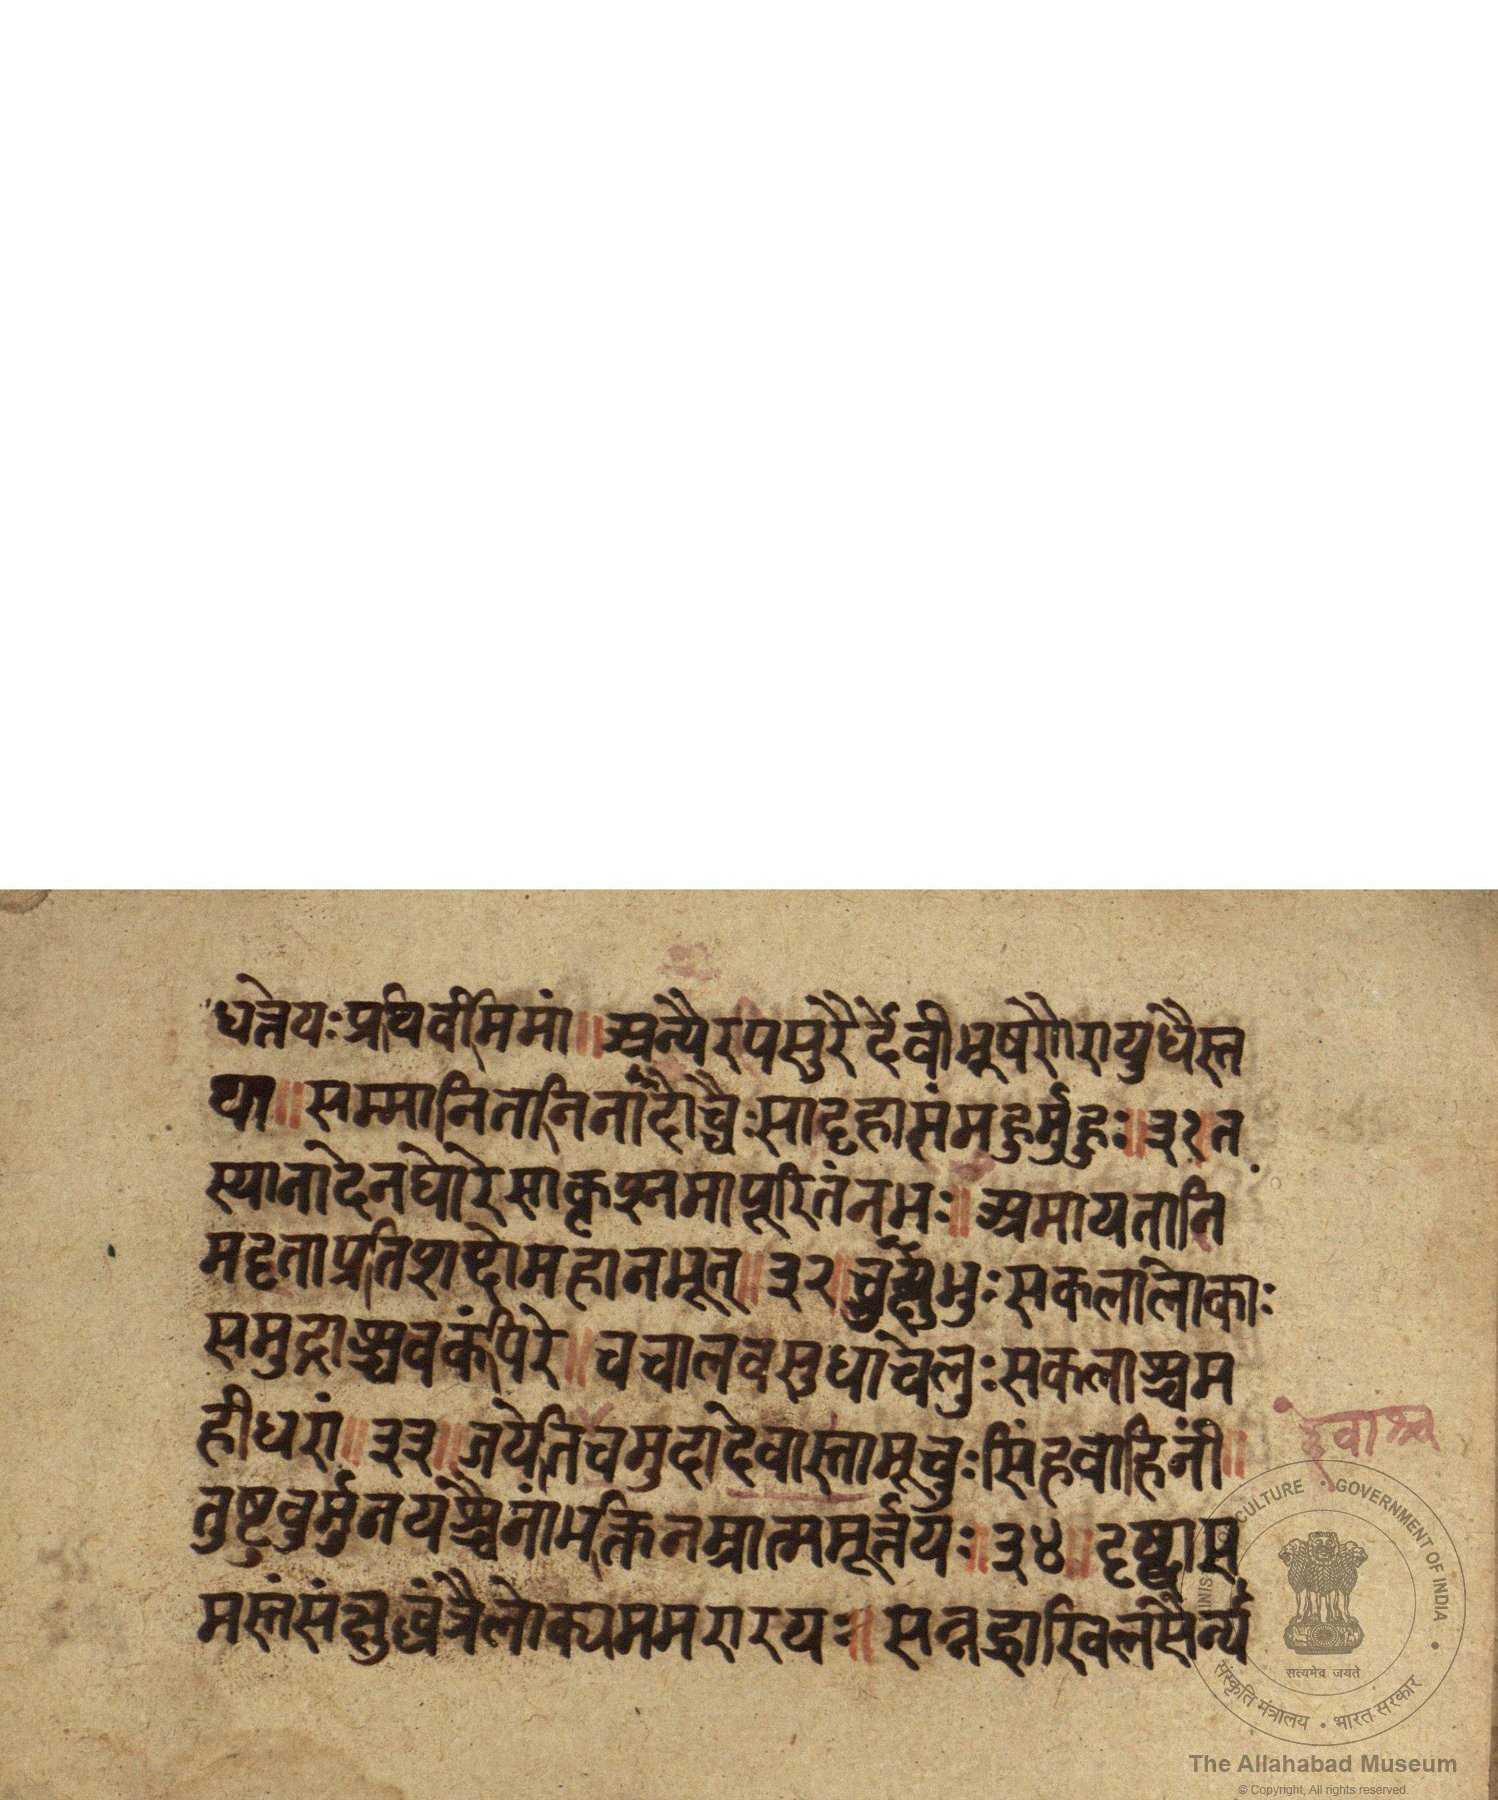 धत्तेयःप्रथिवीमिमां॥अन्यैरपिसुरैर्देवीभूषणैरायुधैस्त
था॥सम्मानितानिनादोच्चैःसादृहासंमुहुर्मुहुः॥३१॥त
स्यानादेनघोरेसाकृश्नमापूरितंनभः॥अमायतानि
महृताप्रतिशब्दोमहानभूत्॥३२॥चुक्षुभुःसकलालोकाः
समुद्राश्चवकंपिरे॥चचालवसुधाचेलुःसकलाश्चम
हीधरां॥३३॥जयेतिचमुदादेवास्तामूचुःसिंहवाहिनीं॥
देवाश्च
तुष्टुवुर्मुनयश्चैनांभक्तिनम्रात्ममूर्त्तयः॥३४॥दृष्ट्वास
मस्तंसंक्षुब्धंत्रैलोक्यममरारयः॥सन्नद्धाखिलसैन्यं
CULTURE GOVERNMENT OF INDIA
सत्यमेव जयते
संस्कृति मंत्रालय • भारत सरकार
The Allahabad Museum
© Copyright, All rights reserved.